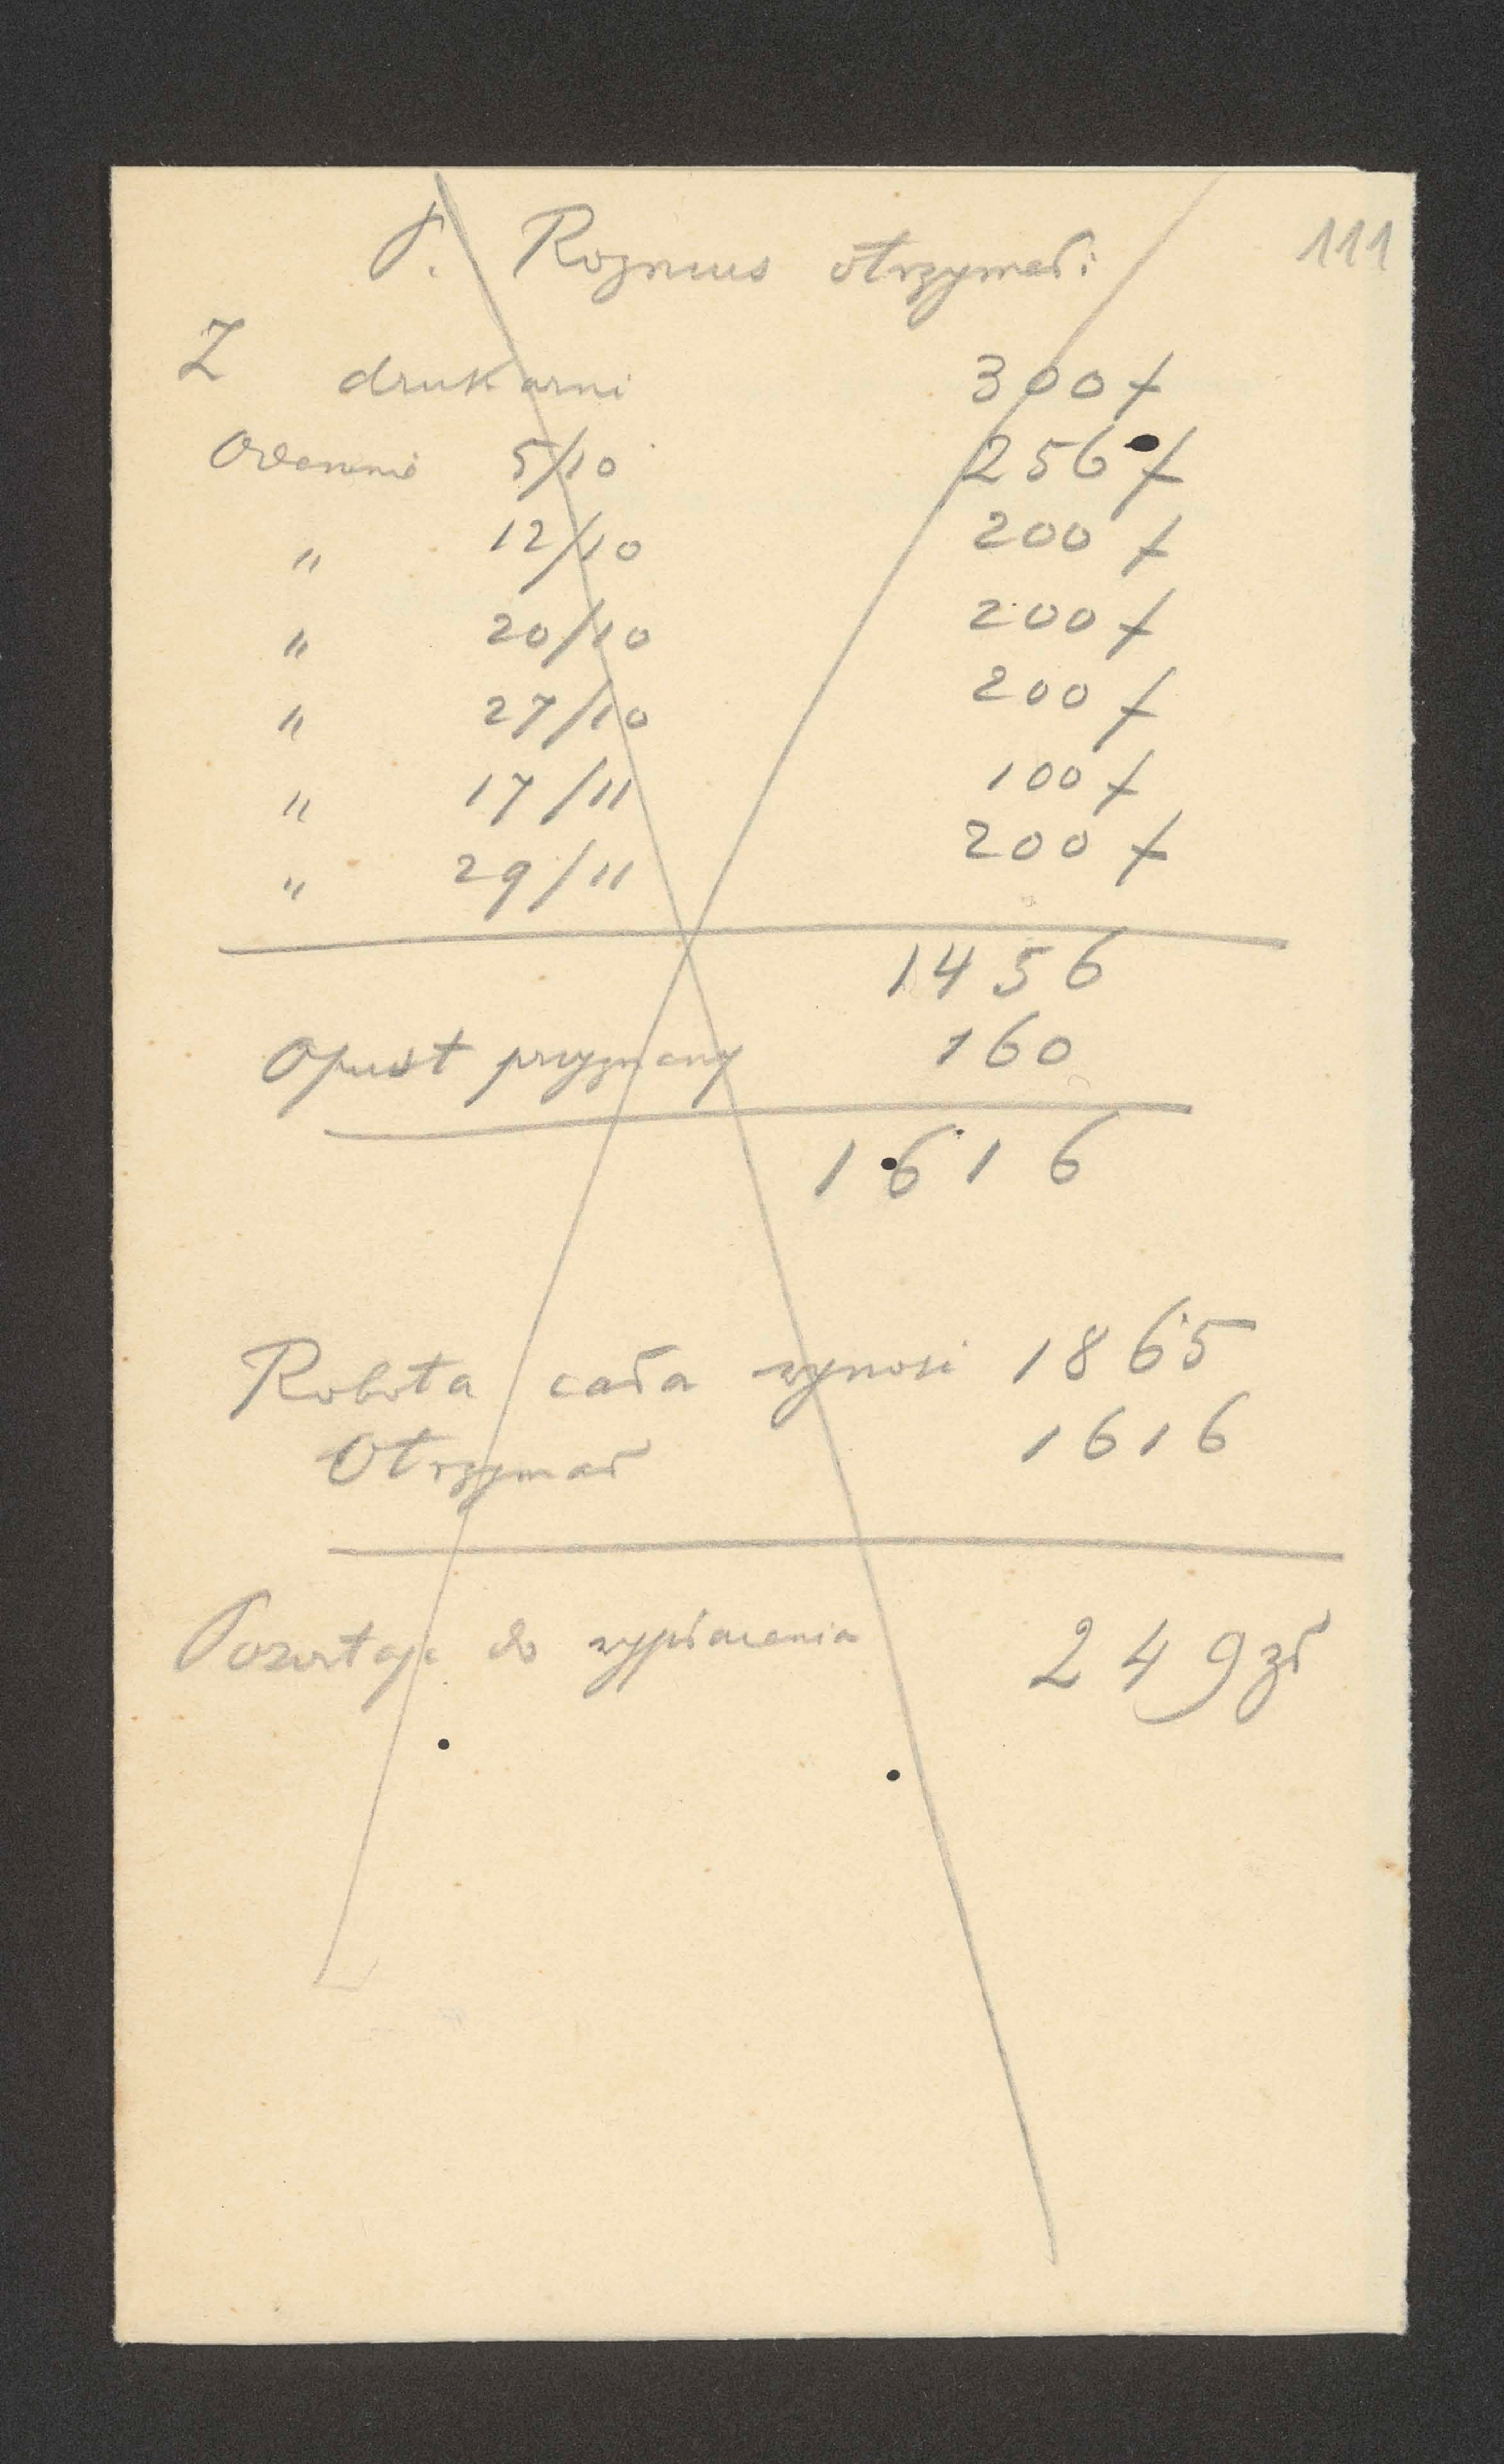 111
P. Rozmus otrzymał:
Z drukarni 300 f
Odemnie 5/10 256 f
" 12/10 200 f
" 20/10 200 f
" 27/10 200 f
" 17/11 100 f
" 29/11 200 f
1456
Opust przyznany 160
1616
Robota cała wynosi 1865
Otrzymał 1616
Pozostaje do wypłacenia 249 zł